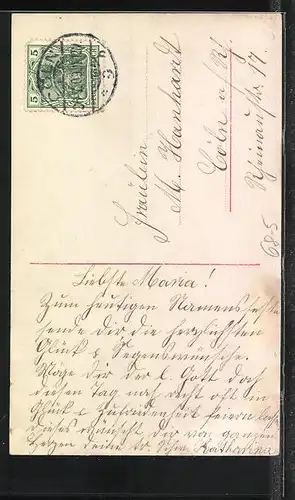 5 5
CÖLN
Fräulein
M. Manhardt
Cöln a/Rh.
Rheinaustr. 17.
68-5
Liebste Maria!
Zum heutigen Namensfeste
sende dir die herzlichsten
Glück & Segenswünsche.
Möge dir der l. Gott doch
diesen Tag noch recht oft in
Glück & Zufriedenheit feiern lassen
Dieses wünscht dir von ganzem
Herzen deine Katharina